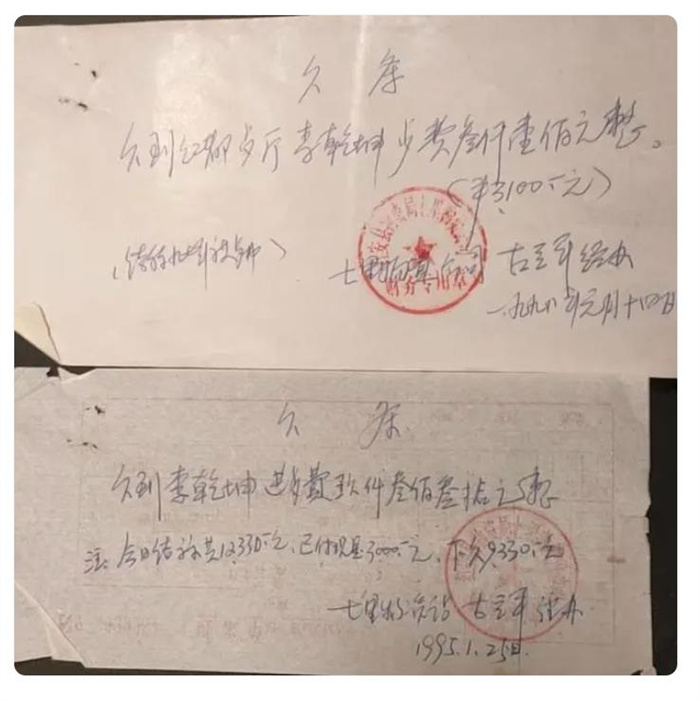 欠条
欠到红都歺厅李乾坤歺费叁仟壹佰元整。
(¥3100.-元)
七里 公司 古 军经办
财务专用章
一九九八年元月十四日
欠条
欠到李乾坤 歺费玖仟叁佰叁拾元整
注:今日结 共12330.-元,已付现金3000.-元,下欠9330.-元
七里 古 军经办.
1995.1.25日.